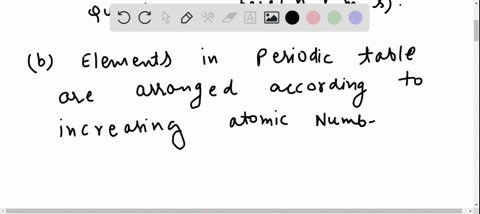 (b) Elements in Periodic table
are arranged according to
increasing atomic Numb-